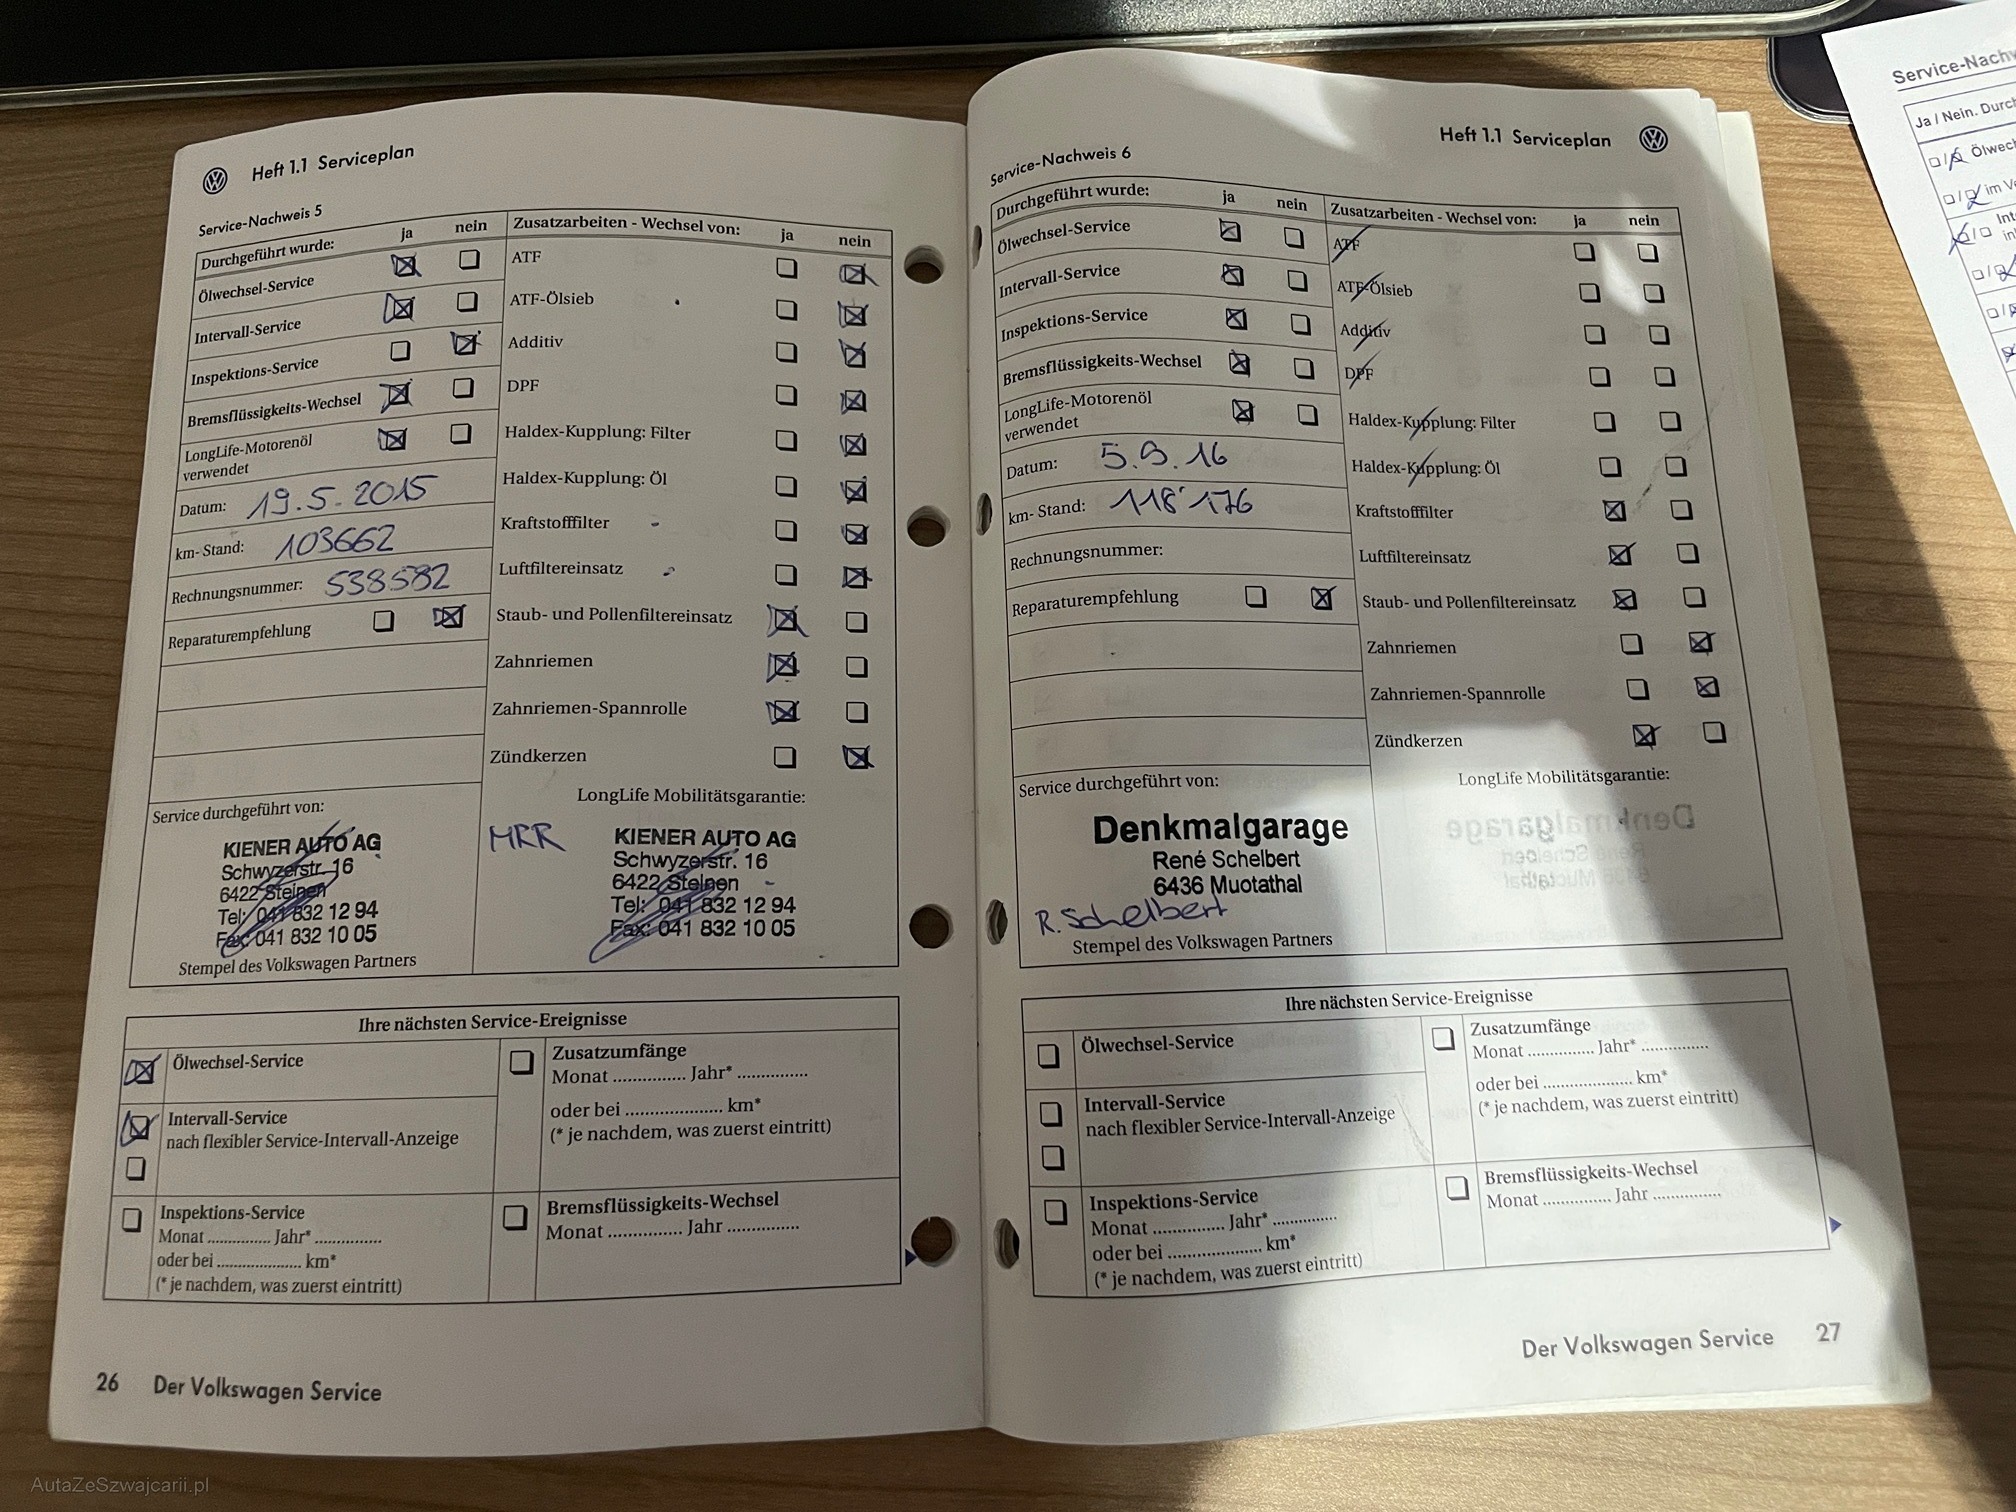 Heft 1.1 Serviceplan
Service-Nachweis 5
Durchgeführt wurde: ja nein
Ölwechsel-Service
Intervall-Service
Inspektions-Service
Bremsflüssigkeits-Wechsel
LongLife-Motorenöl
verwendet
Datum: 19.5.2015
km- Stand: 103662
Rechnungsnummer: 538582
Reparaturempfehlung
Zusatzarbeiten - Wechsel von: ja nein
ATF
ATF-Ölsieb
Additiv
DPF
Haldex-Kupplung: Filter
Haldex-Kupplung: Öl
Kraftstofffilter
Luftfiltereinsatz
Staub- und Pollenfiltereinsatz
Zahnriemen
Zahnriemen-Spannrolle
Zündkerzen
Service durchgeführt von:
KIENER AUTO AG
Schwyzerstr. 16
6422 Steinen
Tel: 041 832 12 94
Fax: 041 832 10 05
Stempel des Volkswagen Partners
LongLife Mobilitätsgarantie:
MRR
KIENER AUTO AG
Schwyzerstr. 16
6422 Steinen
Tel: 041 832 12 94
Fax: 041 832 10 05
Ihre nächsten Service-Ereignisse
Ölwechsel-Service
Intervall-Service
nach flexibler Service-Intervall-Anzeige
Inspektions-Service
Monat ............... Jahr* ...............
oder bei .................... km*
(* je nachdem, was zuerst eintritt)
Zusatzumfänge
Monat ............... Jahr* ...............
oder bei .................... km*
(* je nachdem, was zuerst eintritt)
Bremsflüssigkeits-Wechsel
Monat ............... Jahr ...............
26 Der Volkswagen Service
Heft 1.1 Serviceplan
Service-Nachweis 6
Durchgeführt wurde: ja nein
Ölwechsel-Service
Intervall-Service
Inspektions-Service
Bremsflüssigkeits-Wechsel
LongLife-Motorenöl
verwendet
Datum: 5.9.16
km- Stand: 118'176
Rechnungsnummer:
Reparaturempfehlung
Zusatzarbeiten - Wechsel von: ja nein
ATF
ATF-Ölsieb
Additiv
DPF
Haldex-Kupplung: Filter
Haldex-Kupplung: Öl
Kraftstofffilter
Luftfiltereinsatz
Staub- und Pollenfiltereinsatz
Zahnriemen
Zahnriemen-Spannrolle
Zündkerzen
Service durchgeführt von:
Denkmalgarage
René Schelbert
6436 Muotathal
R. Schelbert
Stempel des Volkswagen Partners
LongLife Mobilitätsgarantie:
Ihre nächsten Service-Ereignisse
Ölwechsel-Service
Intervall-Service
nach flexibler Service-Intervall-Anzeige
Inspektions-Service
Monat ............... Jahr* ...............
oder bei .................... km*
(* je nachdem, was zuerst eintritt)
Zusatzumfänge
Monat ............... Jahr* ...............
oder bei .................... km*
(* je nachdem, was zuerst eintritt)
Bremsflüssigkeits-Wechsel
Monat ............... Jahr ...............
Der Volkswagen Service 27
Service-Nachw
Ja / Nein. Durch
Ölwech
im V
Int
in
AutaZeSzwajcarii.pl